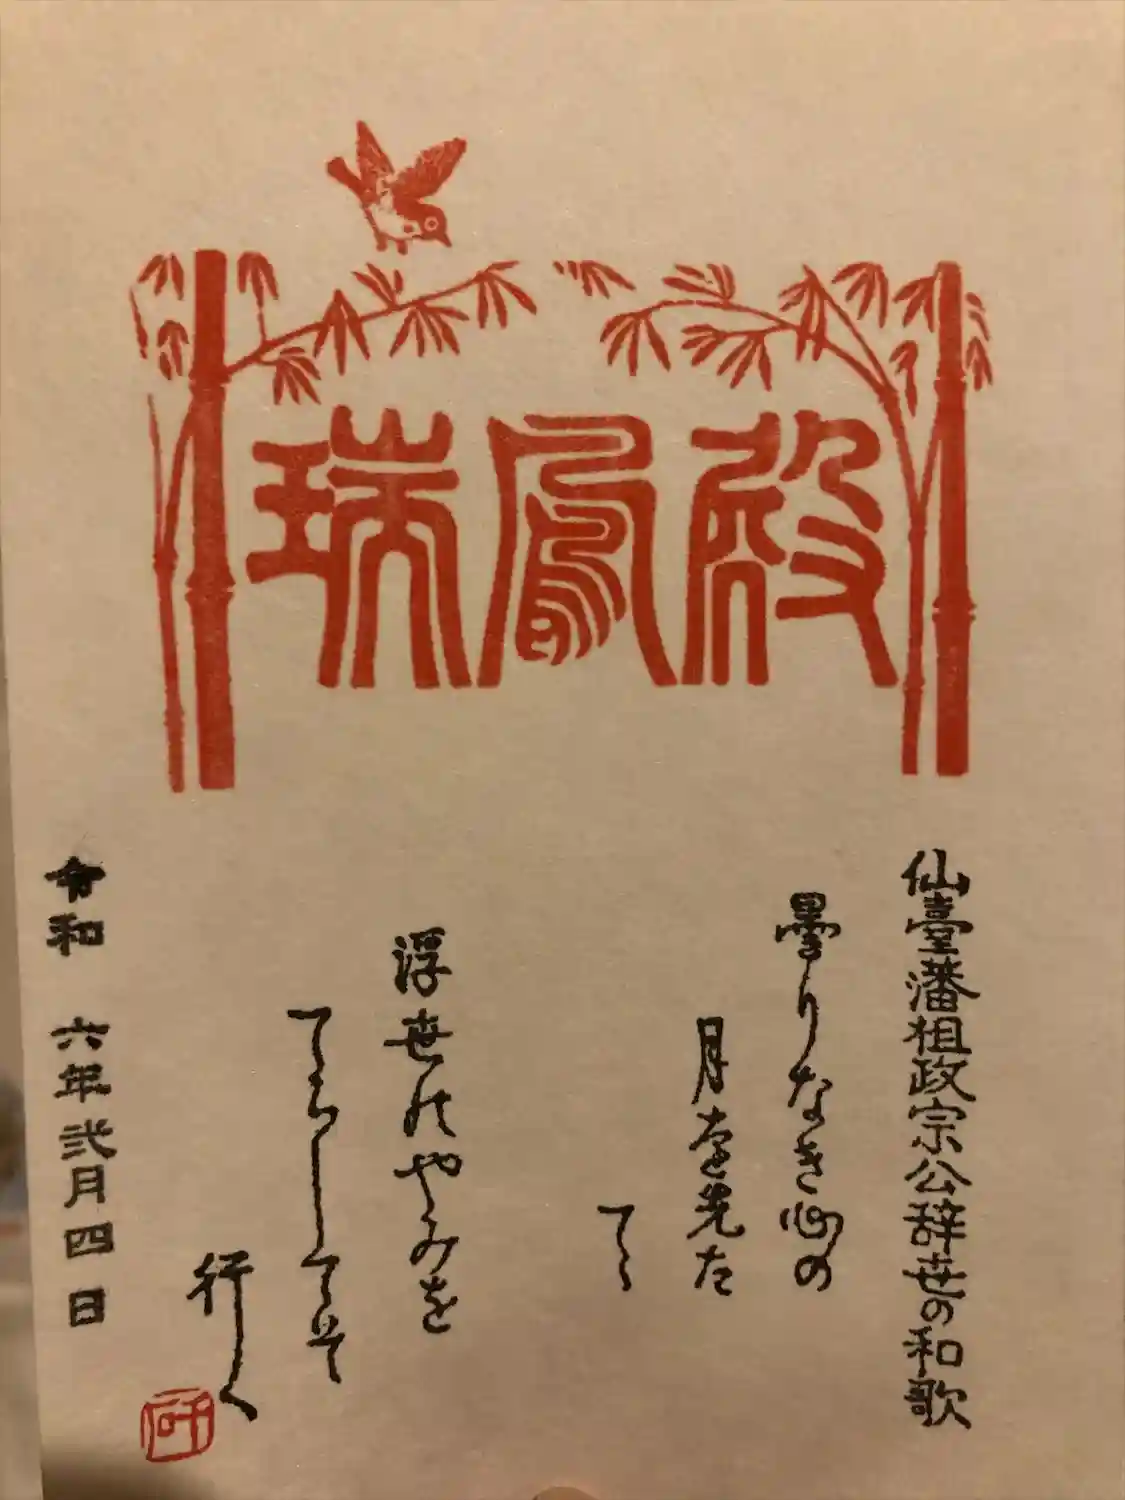 瑞鳳殿
仙臺藩祖政宗公辞世の和歌
曇りなき心の
月を先た
てゝ
浮世のやみを
てらしてそ
行く
令和 六年 弐月四日